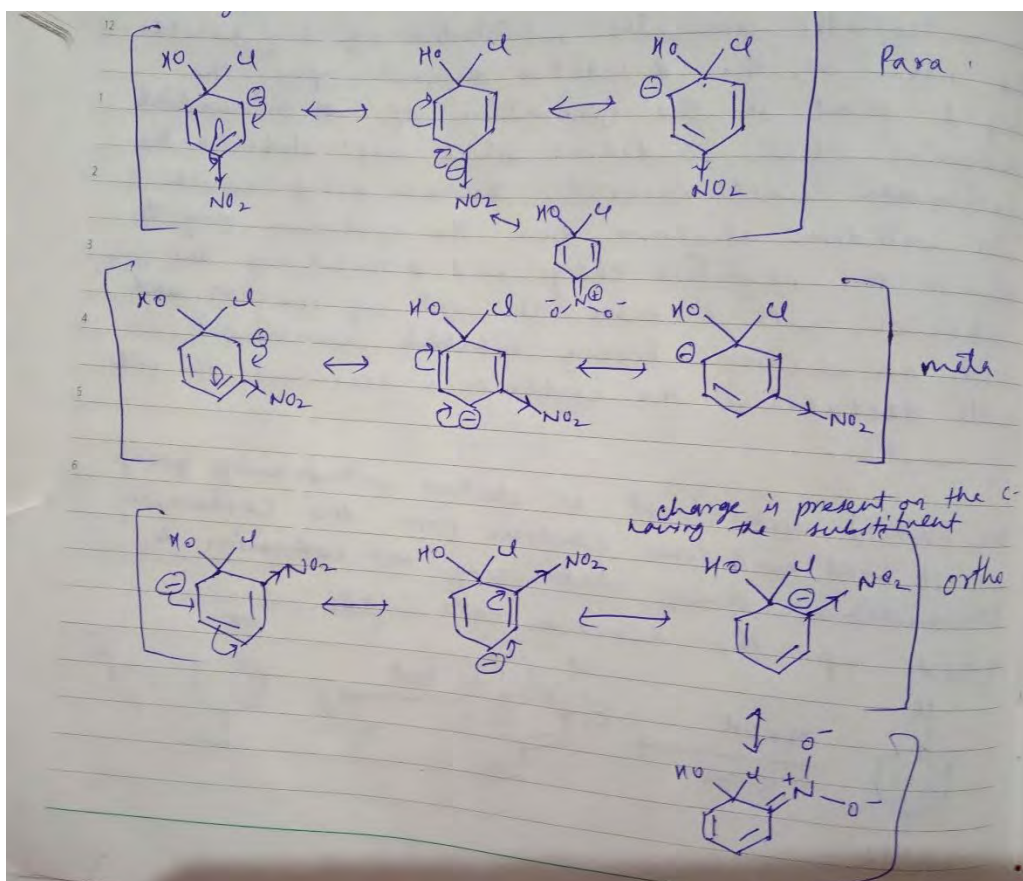 12
HO Cl ⊖ NO2 ↔ HO Cl ⊖ NO2 ↔ HO Cl ⊖ NO2 Para.
1
2
↔ HO Cl N⊕ -O O-
3
HO Cl ⊖ NO2 ↔ HO Cl ⊖ NO2 ↔ HO Cl ⊖ NO2 meta
4
5
6
charge is present on the C-
having the substituent
HO Cl ⊖ NO2 ↔ HO Cl ⊖ NO2 ↔ HO Cl ⊖ NO2 ortho
↕
HO Cl +N O- O-